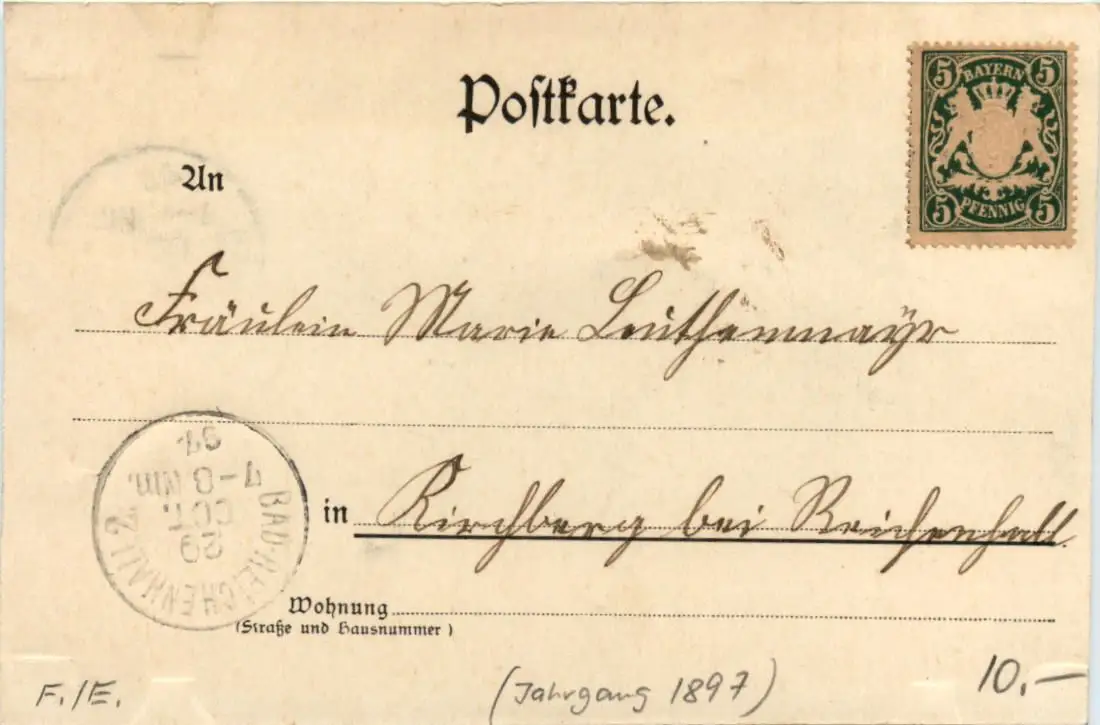 Postkarte.
5 BAYERN 5
5 PFENNIG 5
An
Fräulein Marie Leuthenmayr
in Kirchberg bei Reichenhall.
BAD-REICHENHALL 2.
30
OCT.
7-8 Vm.
97
Wohnung
(Straße und Hausnummer)
F./E.
(Jahrgang 1897)
10.—